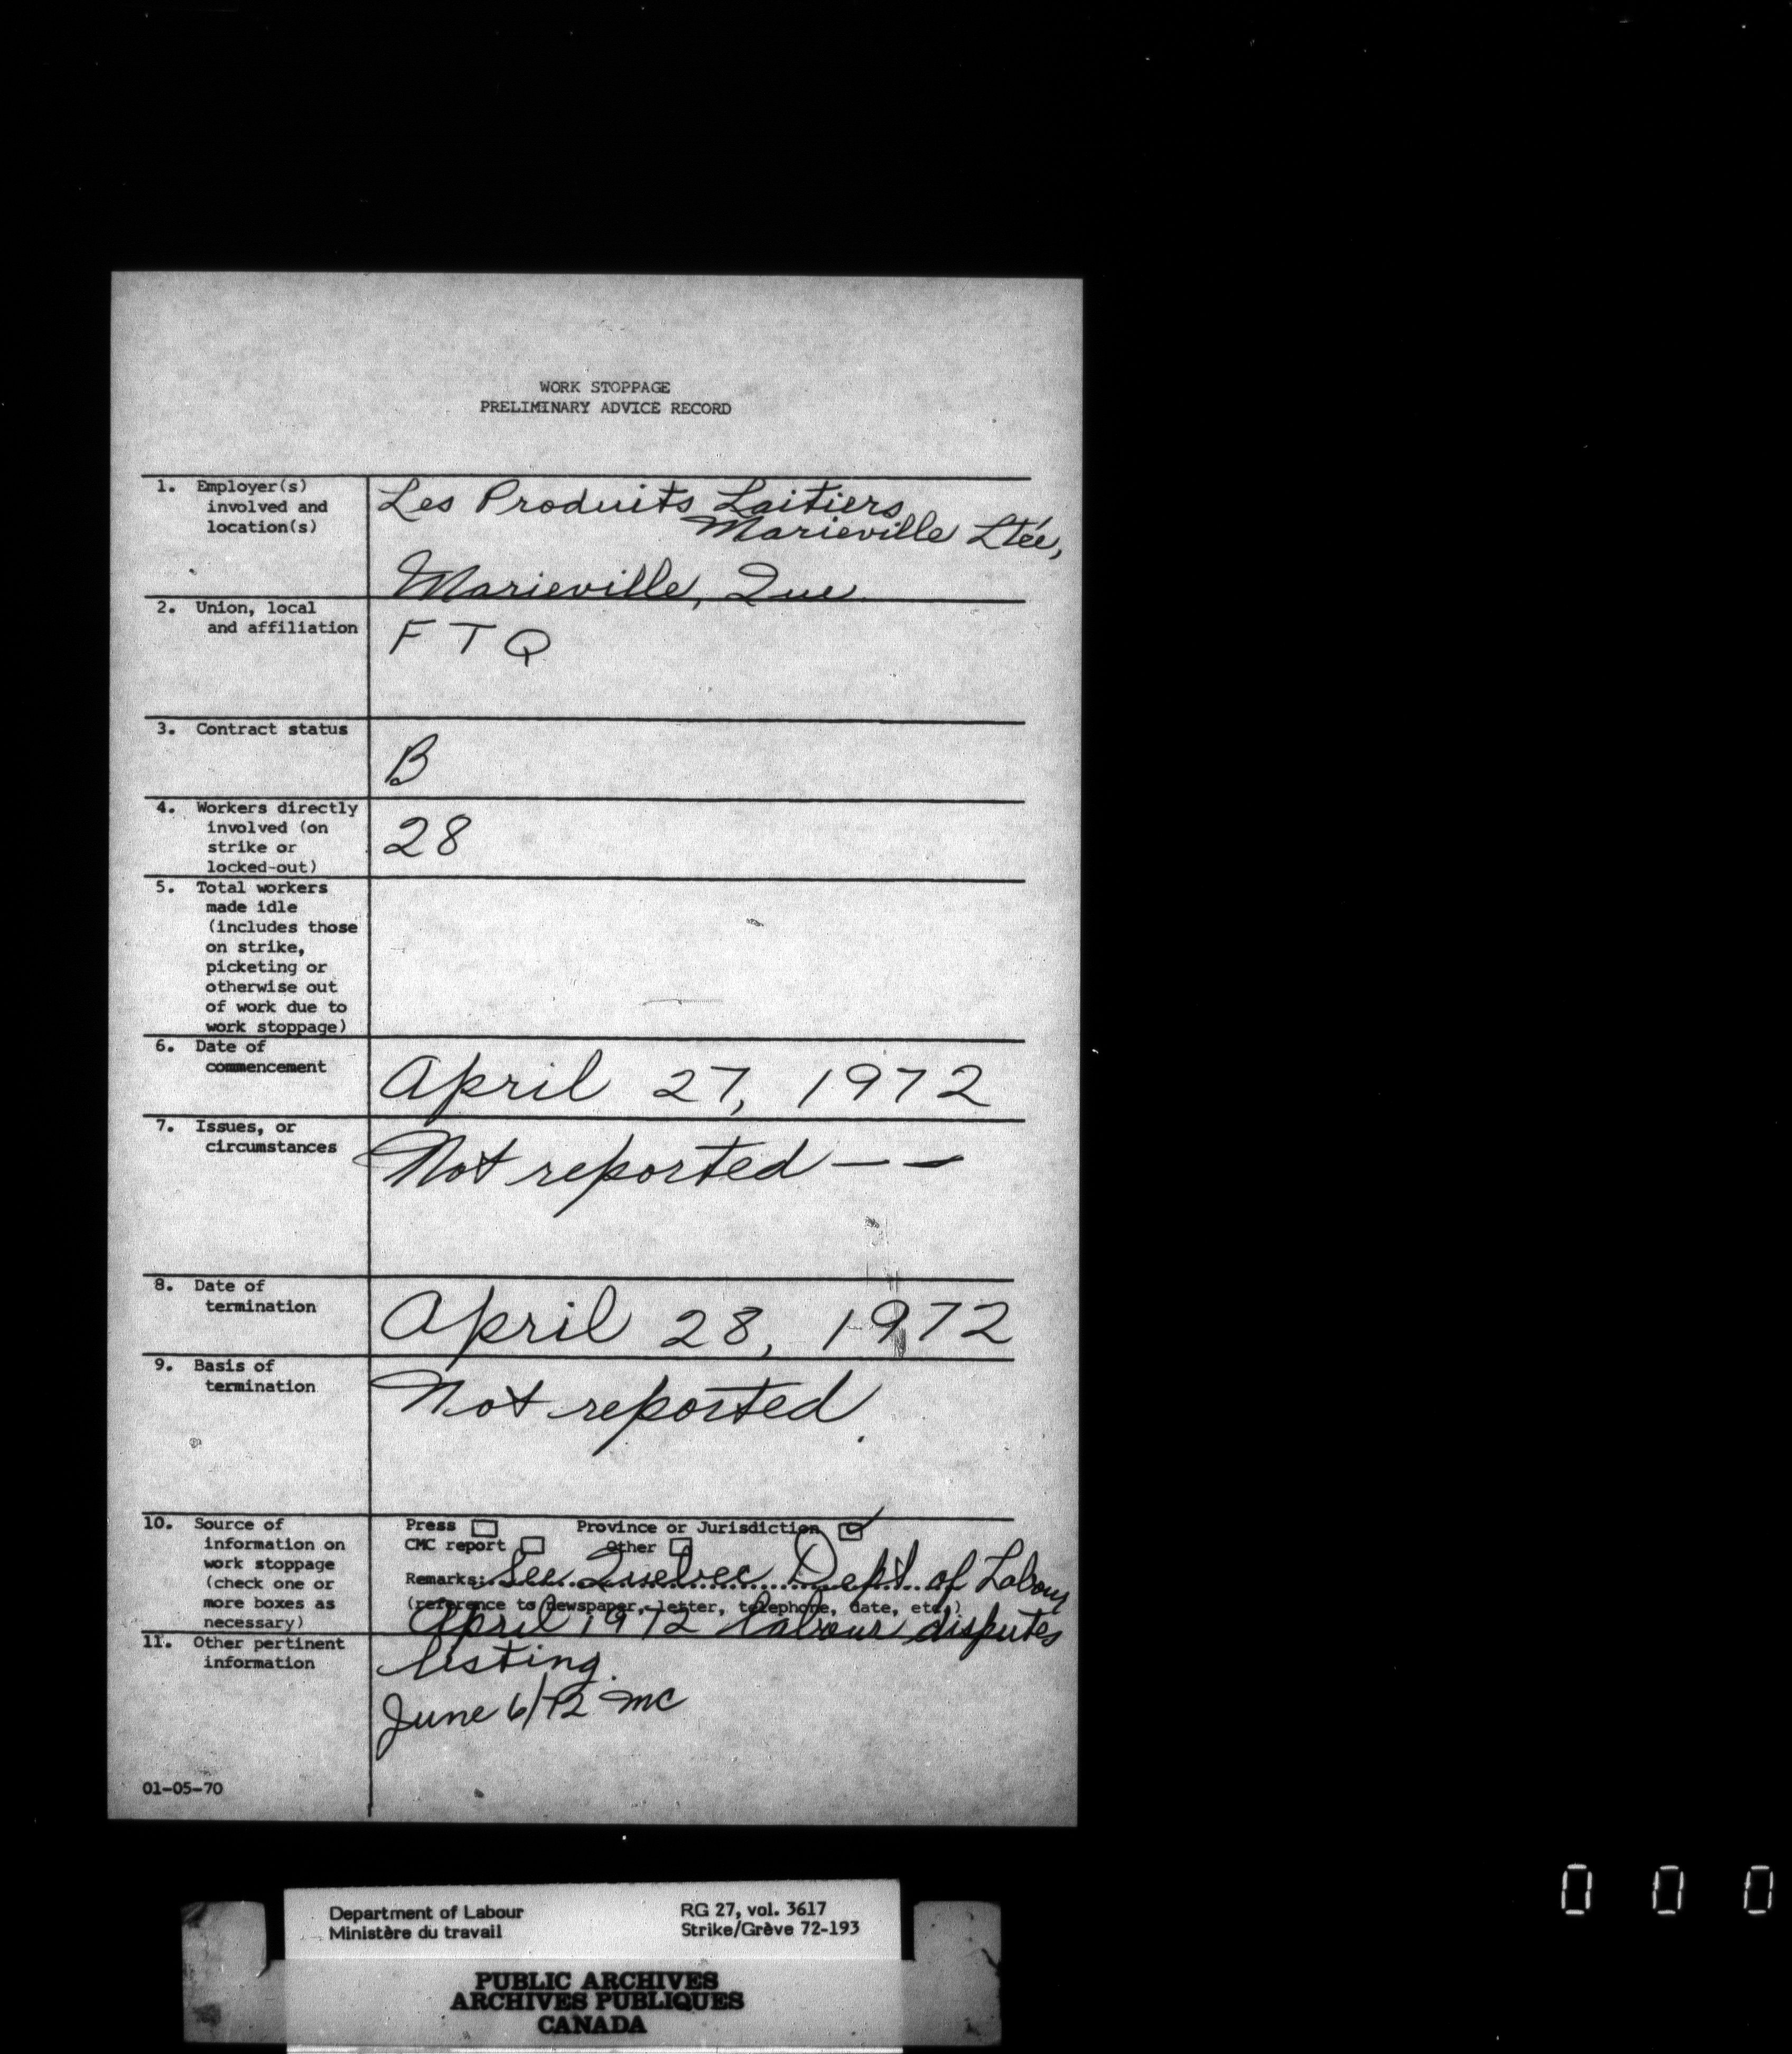 WORK STOPPAGE
PRELIMINARY ADVICE RECORD
1. Employer(s)
involved and
location(s)
Les Produits Laitiers
Marieville Ltée,
Marieville, Que.
2. Union, local
and affiliation
F T Q
3. Contract status
B
4. Workers directly
involved (on
strike or
locked-out)
28
5. Total workers
made idle
(includes those
on strike,
picketing or
otherwise out
of work due to
work stoppage)
6. Date of
commencement
April 27, 1972
7. Issues, or
circumstances
Not reported — —
8. Date of
termination
April 28, 1972
9. Basis of
termination
Not reported.
10. Source of
information on
work stoppage
(check one or
more boxes as
necessary)
Press Province or Jurisdiction ✓
CMC report Other
Remarks: See Quebec Dept. of Labour
(reference to newspaper, letter, telephone, date, etc.)
April 1972 labour disputes
11. Other pertinent
information
listing.
June 6/72 MC
01-05-70
Department of Labour RG 27, vol. 3617
Ministère du travail Strike/Grève 72-193
PUBLIC ARCHIVES
ARCHIVES PUBLIQUES
CANADA
0 0 0